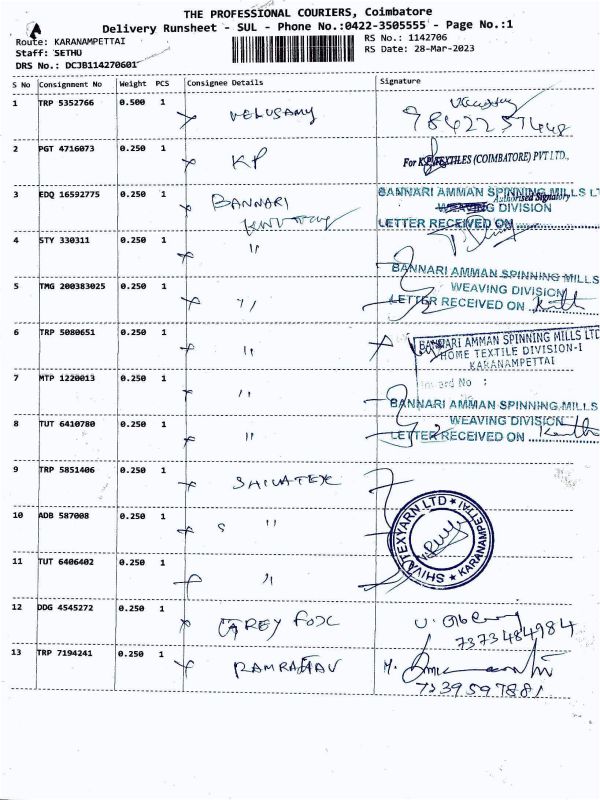 THE PROFESSIONAL COURIERS, Coimbatore
Delivery Runsheet - SUL - Phone No.:0422-3505555 - Page No.:1
Route: KARANAMPETTAI
RS No.: 1142706
Staff: SETHU
RS Date: 28-Mar-2023
DRS No.: DCJB114270601
S No Consignment No Weight PCS Consignee Details Signature
1 TRP 5352766 0.500 1 VELUSAMY
9842257448
2 PGT 4716073 0.250 1 KP
For K.P. TEXTILES (COIMBATORE) PVT LTD.,
Authorised Signatory
3 EDQ 16592775 0.250 1 BANNARI
BANNARI AMMAN SPINNING MILLS LT
WEAVING DIVISION
LETTER RECEIVED ON
4 STY 330311 0.250 1 "
BANNARI AMMAN SPINNING MILLS
WEAVING DIVISION
LETTER RECEIVED ON
5 TMG 200383025 0.250 1 "
6 TRP 5080651 0.250 1 "
BANNARI AMMAN SPINNING MILLS LTD
HOME TEXTILE DIVISION-I
KARANAMPETTAI
Inward No :
7 MTP 1220013 0.250 1 "
BANNARI AMMAN SPINNING MILLS
WEAVING DIVISION
LETTER RECEIVED ON
8 TUT 6410780 0.250 1 "
9 TRP 5851406 0.250 1 SHIVATEX
10 ADB 587008 0.250 1 "
SHIVA TEXYARN LTD ★ KARANAMPETTAI ★
11 TUT 6406402 0.250 1 "
12 DDG 4545272 0.250 1 GREY FOX
7373484984
13 TRP 7194241 0.250 1 RAMRAGAV
7339597881